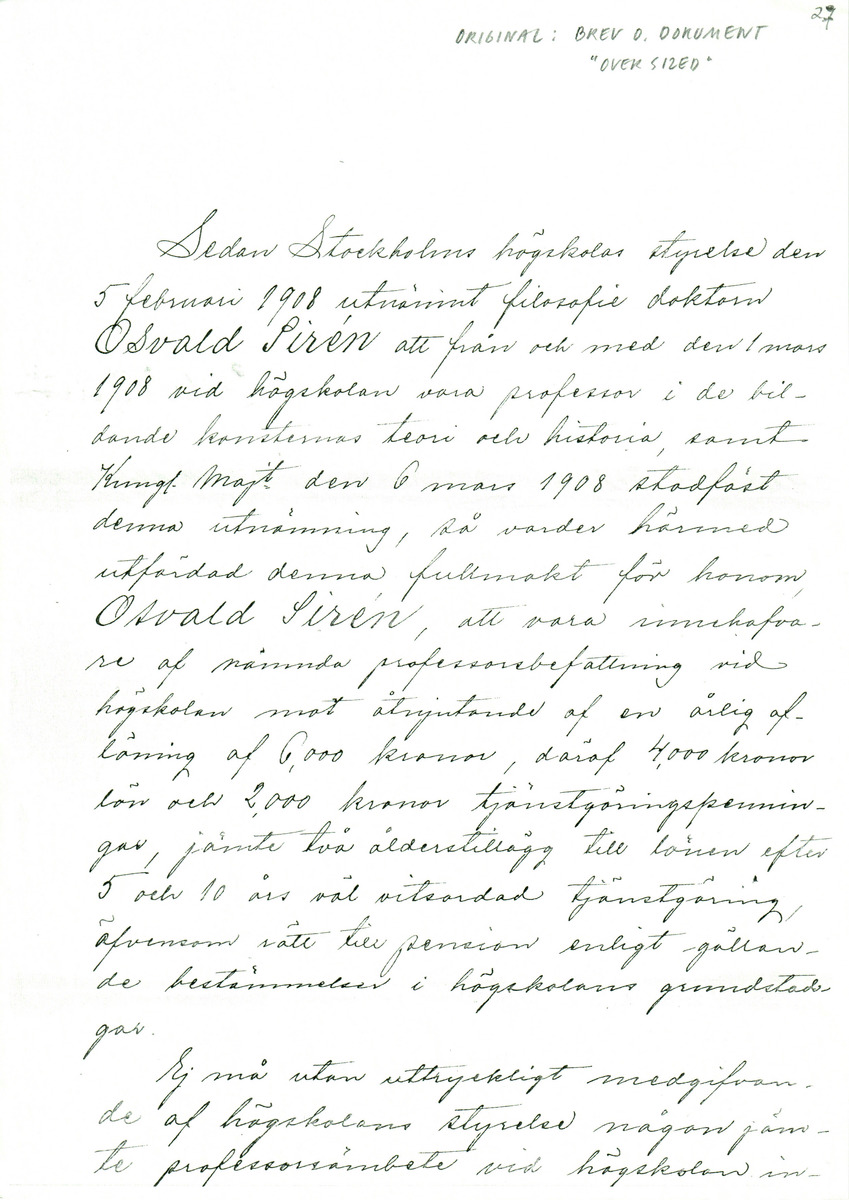 27
ORIGINAL: BREV O. DOKUMENT
"OVER SIZED"
Sedan Stockholms högskolas styrelse den
5 februari 1908 utnämnt filosofie doktorn
Osvald Sirén att från och med den 1 mars
1908 vid högskolan vara professor i de bil-
dande konsternas teori och historia, samt
Kungl. Majt. den 6 mars 1908 stadfäst
denna utnämning, så varder härmed
utfärdad denna fullmakt för honom,
Osvald Sirén, att vara innehafva-
re af nämnda professorsbefattning vid
högskolan mot åtnjutande af en årlig af-
löning af 6,000 kronor, däraf 4,000 kronor
lön och 2,000 kronor tjänstgöringspennin-
gar, jämte två ålderstillägg till lönen efter
5 och 10 års väl vitsordad tjänstgöring,
äfvensom rätt till pension enligt gällan-
de bestämmelser i högskolans grundstad-
gar.
Ej må utan uttryckligt medgifvan-
de af högskolans styrelse någon jäm-
te professorsämbete vid högskolan in-